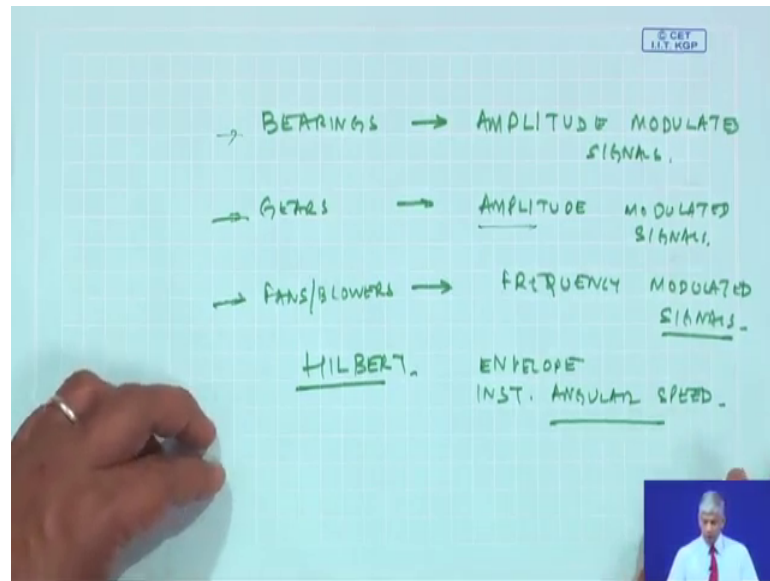 © CET
I.I.T. KGP
→ BEARINGS → AMPLITUDE MODULATED
SIGNALS.
→ GEARS → AMPLITUDE MODULATED
SIGNALS.
→ FANS/BLOWERS → FREQUENCY MODULATED
SIGNALS.
HILBERT. ENVELOPE
INST. ANGULAR SPEED.